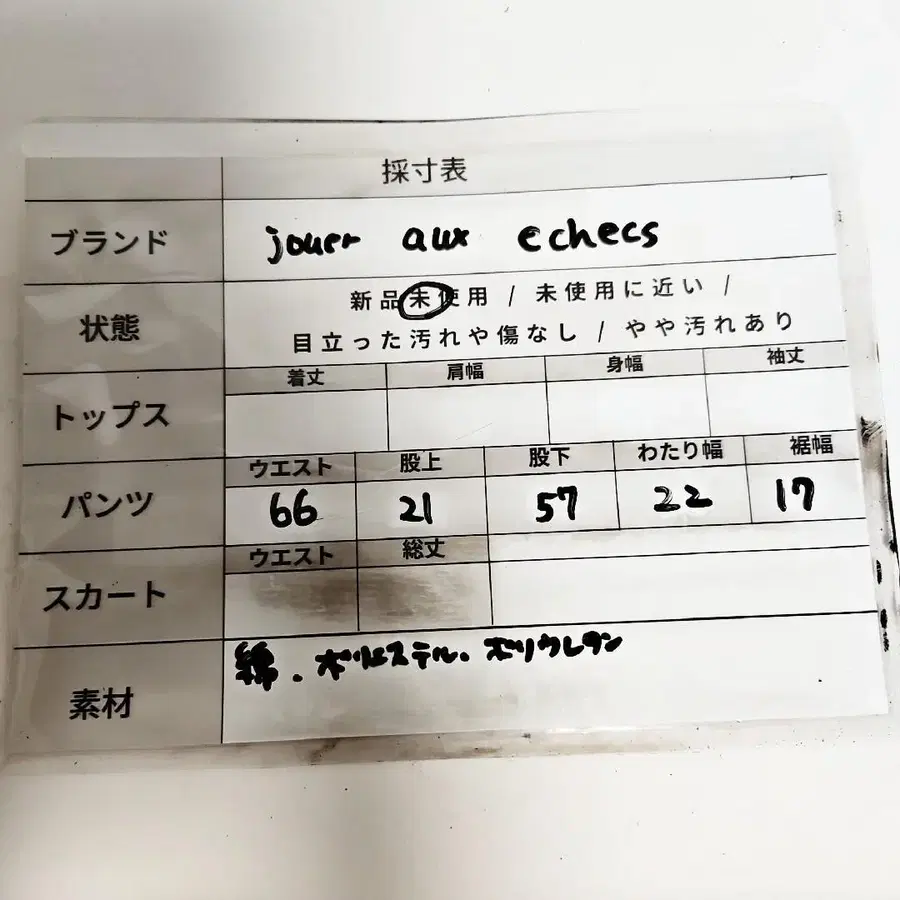 採寸表
ブランド jouer aux echecs
状態 新品未使用 / 未使用に近い /
目立った汚れや傷なし / やや汚れあり
着丈 肩幅 身幅 袖丈
トップス
ウエスト 股上 股下 わたり幅 裾幅
パンツ 66 21 57 22 17
ウエスト 総丈
スカート
素材 綿.ポリエステル.ポリウレタン